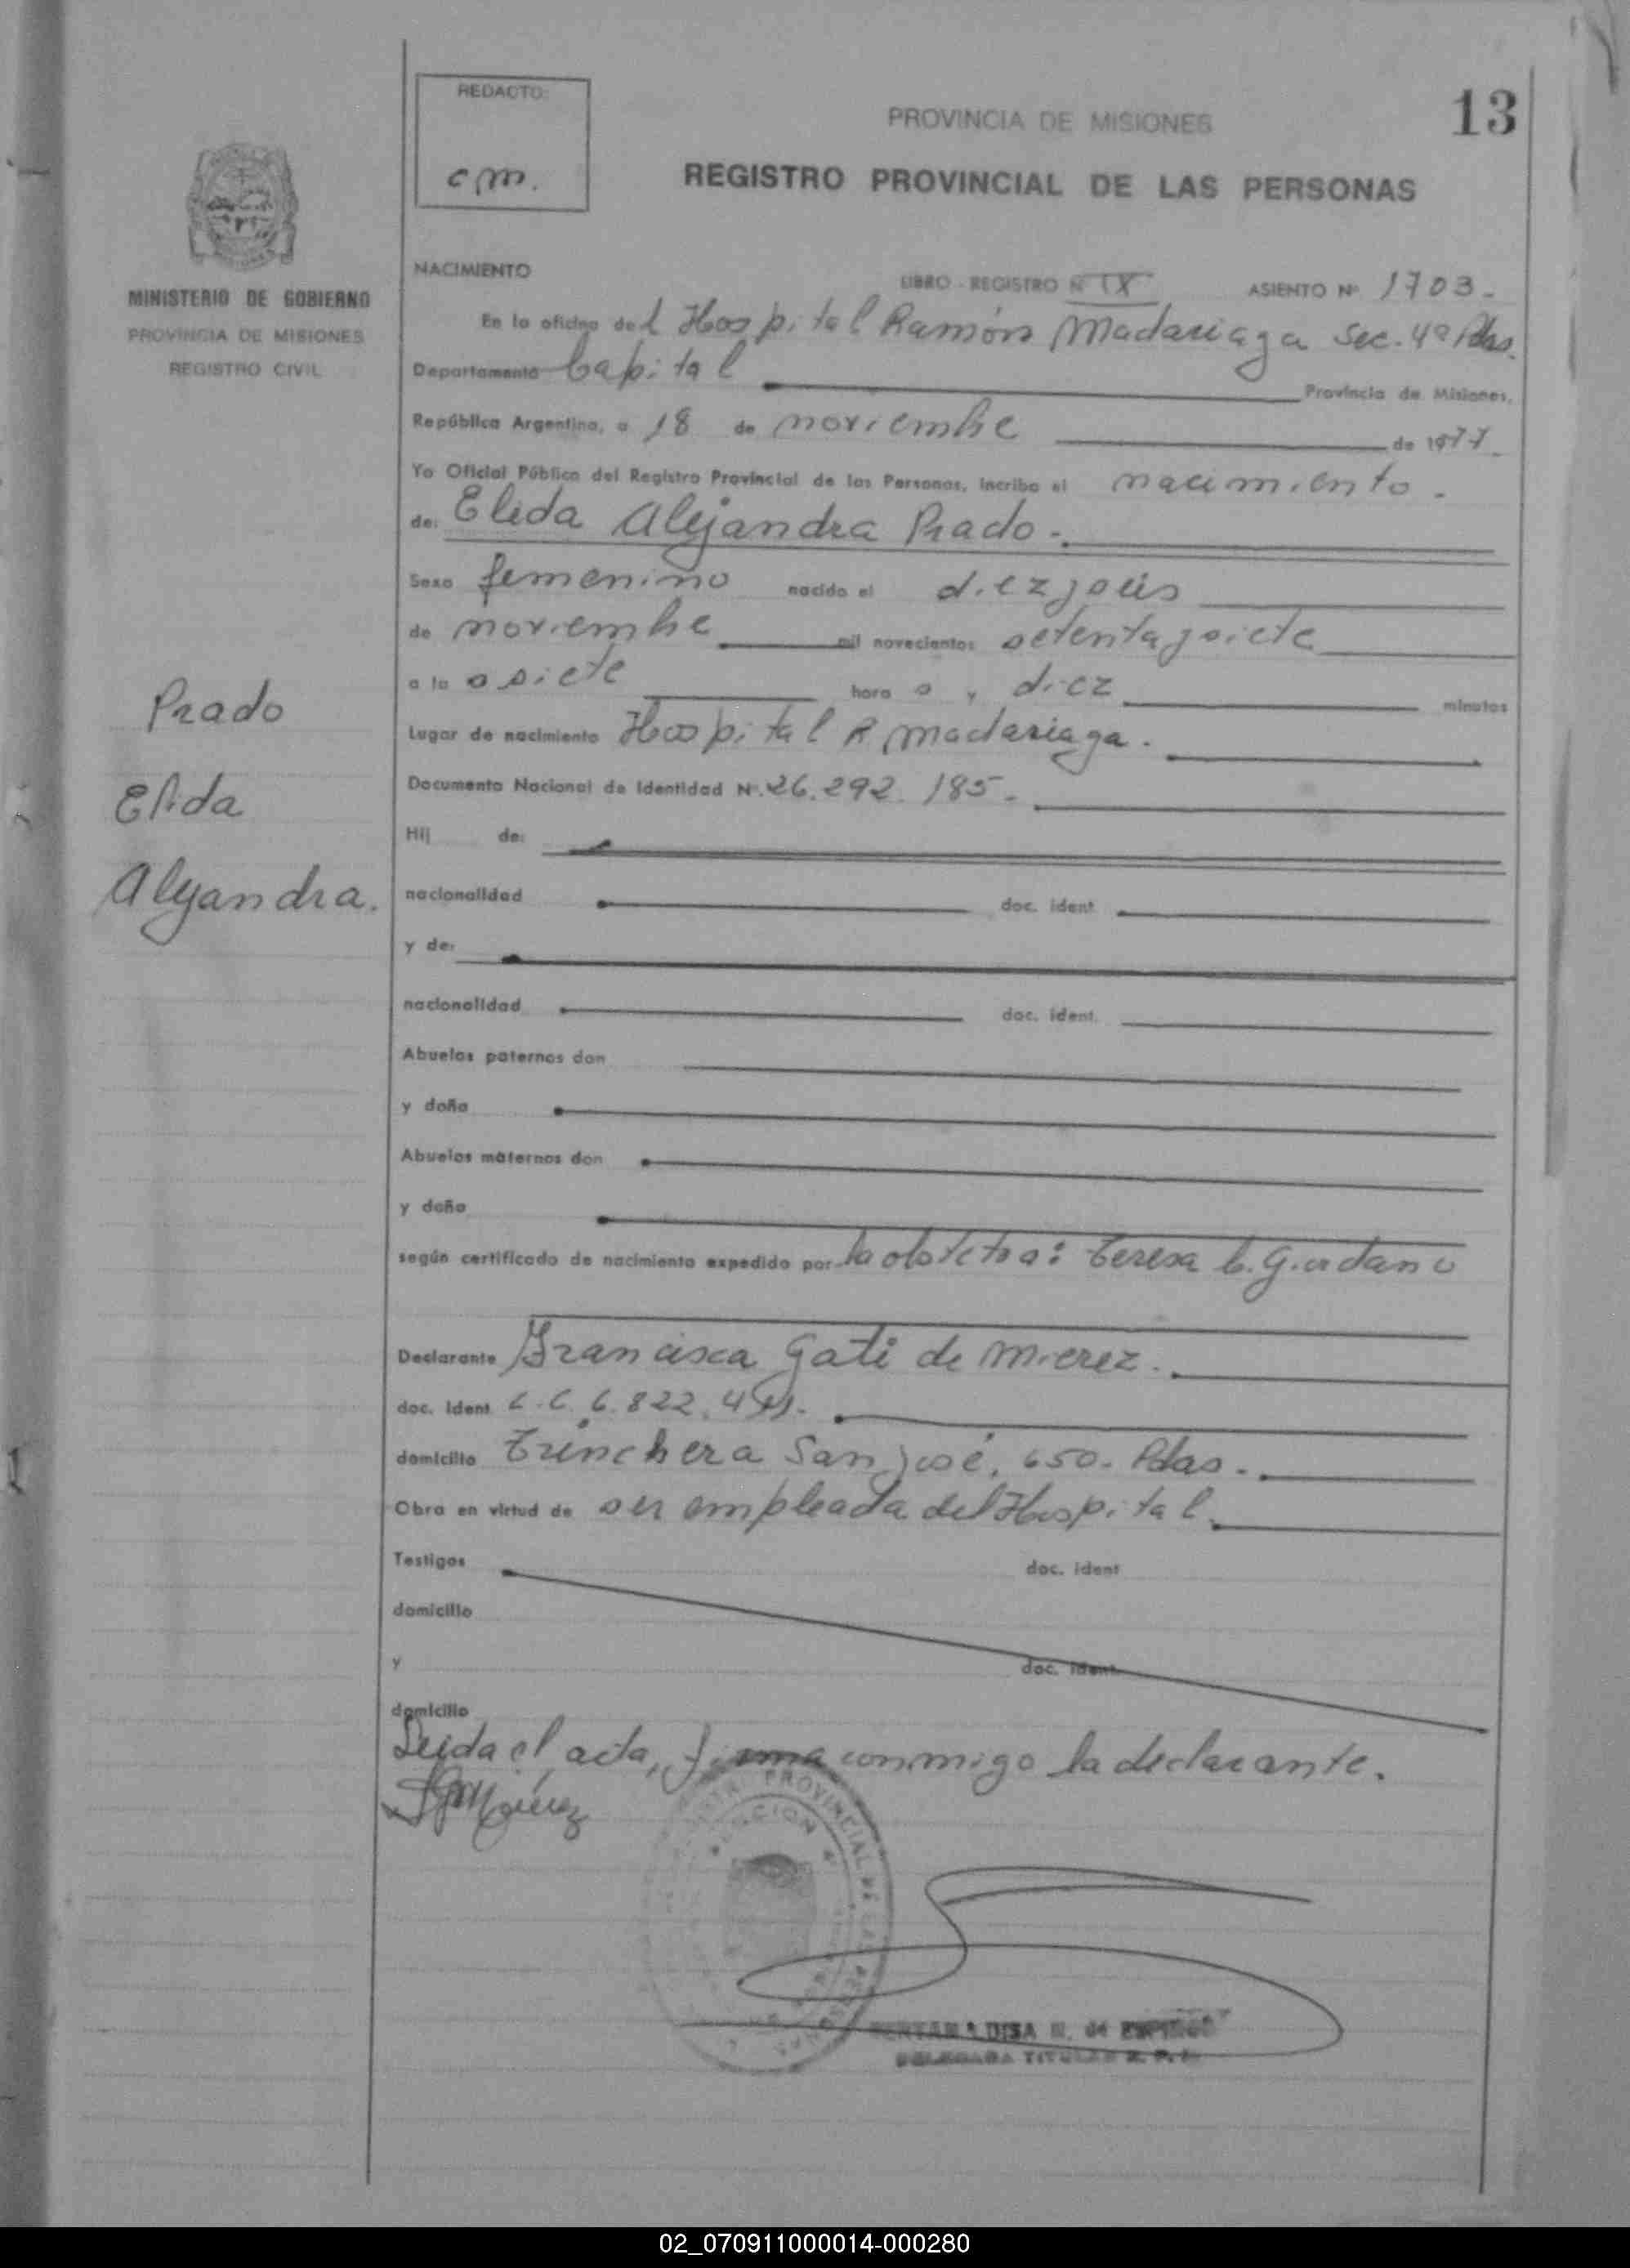 REDACTO:
c m.
PROVINCIA DE MISIONES
13
REGISTRO PROVINCIAL DE LAS PERSONAS
MINISTERIO DE GOBIERNO
PROVINCIA DE MISIONES
REGISTRO CIVIL
NACIMIENTO
LIBRO - REGISTRO Nº IX ASIENTO Nº 1703-
En la oficina del Hospital Ramón Madariaga Sec. 4ª Pdas.
Departamento Capital Provincia de Misiones,
República Argentina, a 18 de noviembre de 1977
Yo Oficial Público del Registro Provincial de las Personas, incribo el nacimiento.
de: Elida Alejandra Prado-.
Sexo femenino nacido el diezyseis
de noviembre mil novecientos setentaysiete
a las siete hora s y diez minutos
Prado
Lugar de nacimiento Hospital R Madariaga.
Elida
Documento Nacional de Identidad Nº. 26.292.185-
Hij de:
Alejandra.
nacionalidad doc. ident.
y de:
nacionalidad doc. ident.
Abuelos paternos don
y doña
Abuelos maternos don
y doña
según certificado de nacimiento expedido por la obstetra: Teresa C. Giordano
Declarante Francisca Gati de Mierez.
doc. Ident. L.C. 6.822.
domicilio Trinchera San José, 650- Pdas-.
Obra en virtud de ser empleada del Hospital.
Testigos doc. ident
domicilio
y doc. ident
domicilio
Leida el acta, firma conmigo la declarante.
REGISTRO PROVINCIAL DE LAS PERSONAS
DELEGADA TITULAR R. P. P.
02_070911000014-000280